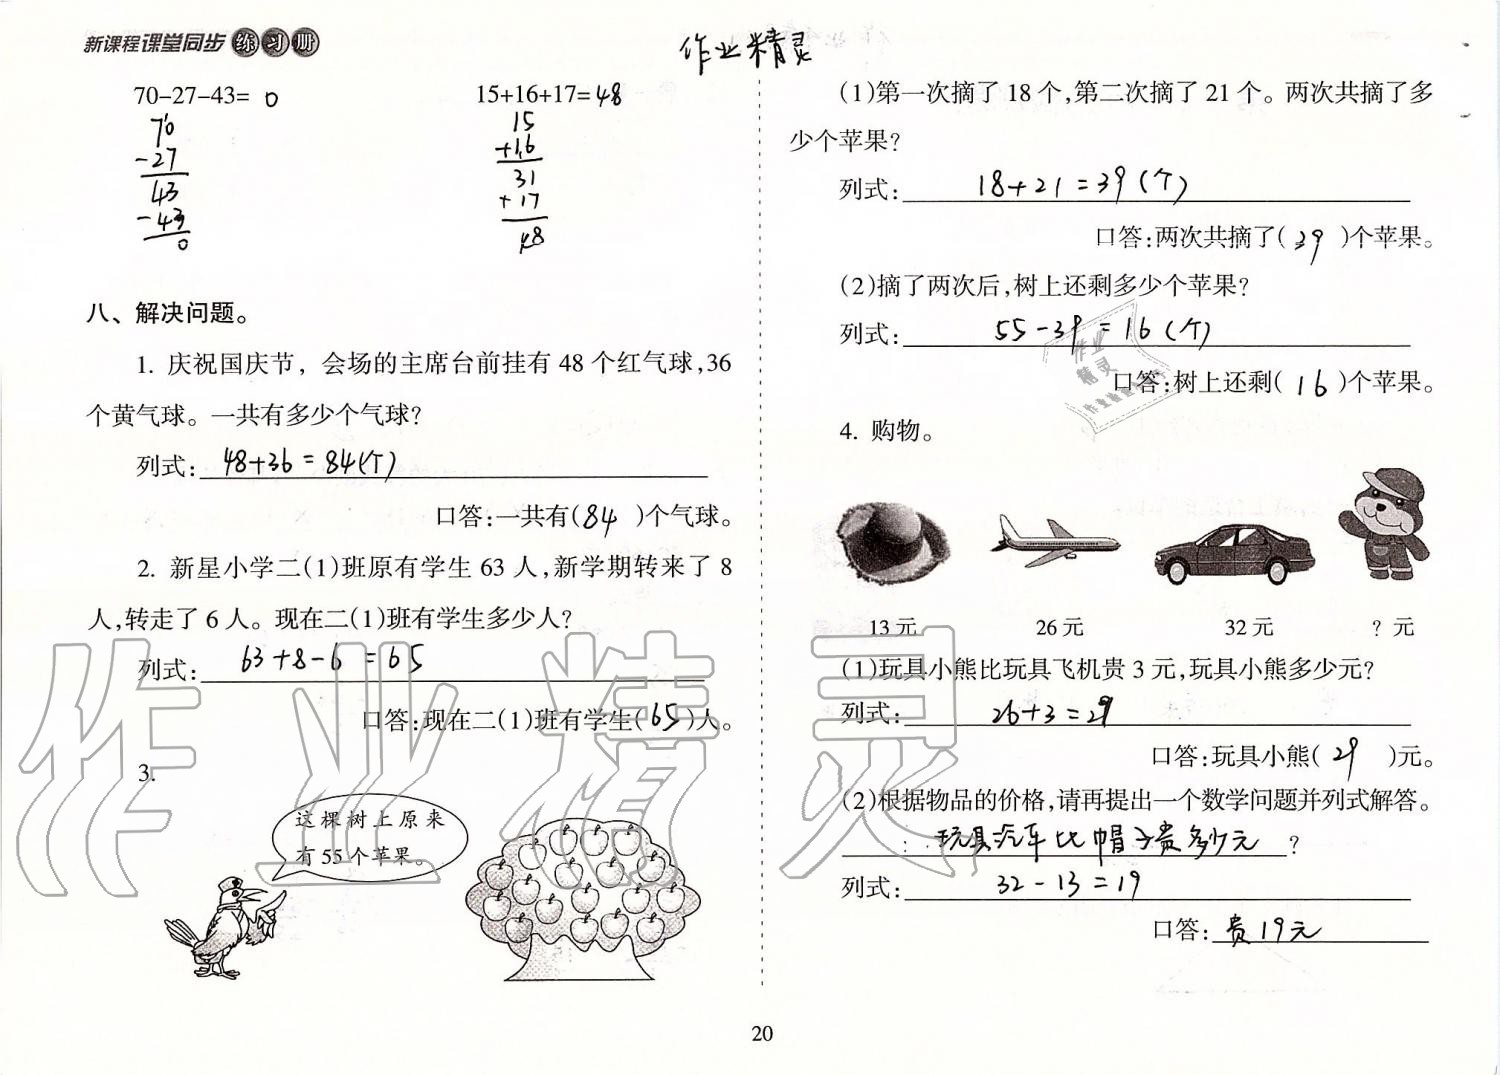 新课程课堂同步练习册
作业精灵
70-27-43= 0
70
-27
43
-43
0
15+16+17=48
15
+16
31
+17
48
八、解决问题。
1. 庆祝国庆节，会场的主席台前挂有 48 个红气球,36
个黄气球。一共有多少个气球?
列式: 48+36=84(个)
口答:一共有(84)个气球。
2. 新星小学二(1)班原有学生 63 人,新学期转来了 8
人,转走了 6 人。现在二(1)班有学生多少人?
列式: 63+8-6=65
口答:现在二(1)班有学生(65)人。
3.
这棵树上原来
有 55 个苹果。
(1)第一次摘了 18 个,第二次摘了 21 个。两次共摘了多
少个苹果?
列式: 18+21=39(个)
口答:两次共摘了(39)个苹果。
(2)摘了两次后,树上还剩多少个苹果?
列式: 55-39=16(个)
口答:树上还剩(16)个苹果。
4. 购物。
13 元 26 元 32 元 ? 元
(1)玩具小熊比玩具飞机贵 3 元,玩具小熊多少元?
列式: 26+3=29
口答:玩具小熊(29)元。
(2)根据物品的价格,请再提出一个数学问题并列式解答。
玩具汽车比帽子贵多少元?
列式: 32-13=19
口答: 贵19元
20
作业精灵
作业
精灵